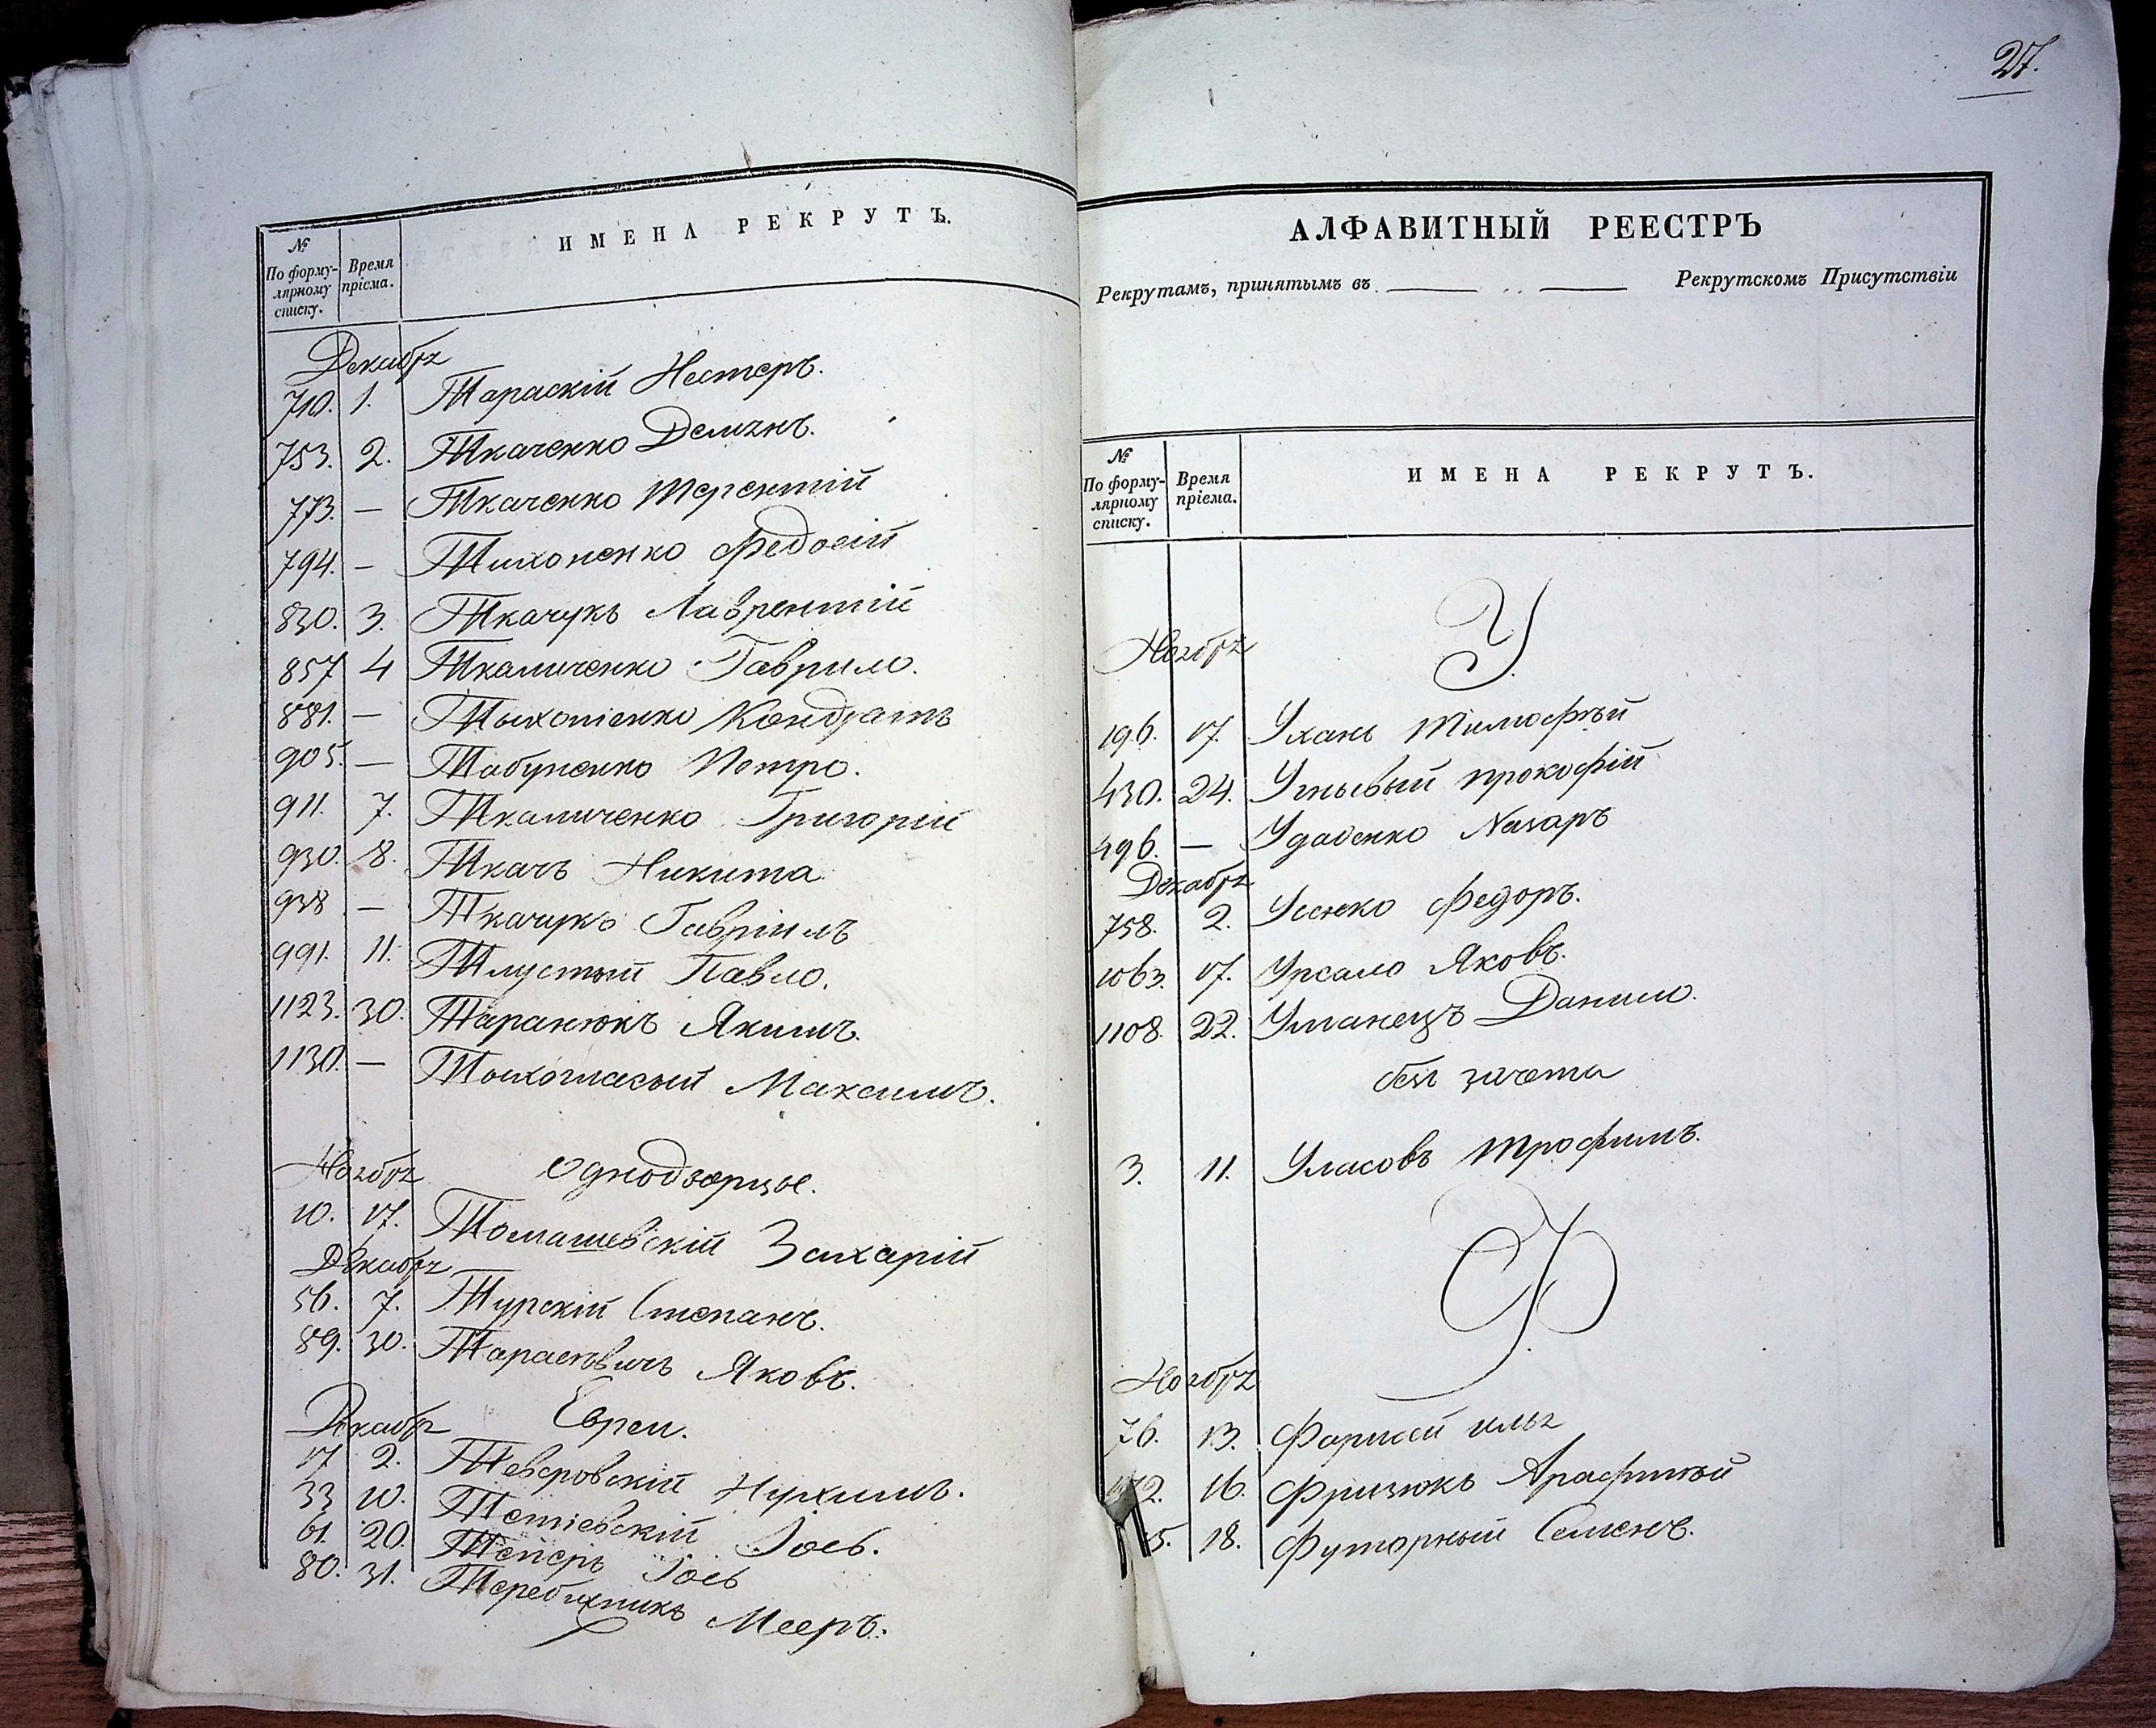 №
По форму-
лярному
списку.
Время
пріема.
ИМЕНА РЕКРУТЪ.
Декабря
710. 1. Тараскій Нестеръ.
753. 2. Ткаченко Демянъ.
773. — Ткаченко Терентій
794. — Тихоненко Федосій
830. 3. Ткачукъ Лаврентій
857 4 Ткаличенко Гаврило.
881. — Кондратъ
905. — Табуненко Петро.
911. 7. Ткаличенко Григорій
930. 8. Ткачъ Никита
938 — Ткачукъ Гавріилъ
991. 11. Тлустый Павло.
1123. 30. Таранюкъ Якимъ.
1130. — Максимъ.
Ноября Однодворцы.
10. 17. Томашевскій Захарій
Декабря
56. 7. Турскій Степанъ.
89. 30. Тарасевичъ Яковъ.
Декабря Евреи.
17 2. Теверовскій Нухимъ.
33 10. Тетіевскій Іось.
61. 20. Теперъ Іось
80. 31. Мееръ.
27.
АЛФАВИТНЫЙ РЕЕСТРЪ
Рекрутамъ, принятымъ въ Рекрутскомъ Присутствіи
№
По форму-
лярному
списку.
Время
пріема.
ИМЕНА РЕКРУТЪ.
У
Ноября
196. 17. Уханъ Тимофѣй
430. 24. Прокофій
496. — Удаденко Назаръ
Декабря
758. 2. Усенко Федоръ.
1063. 17. Урсало Яковъ.
1108. 22. Уманецъ Данило.
безъ зачета
3. 11. Уласовъ Трофимъ.
Ф
Ноября
76. 13. Фарисей Илья
16. Фризюкъ
5. 18. Футорный Семенъ.